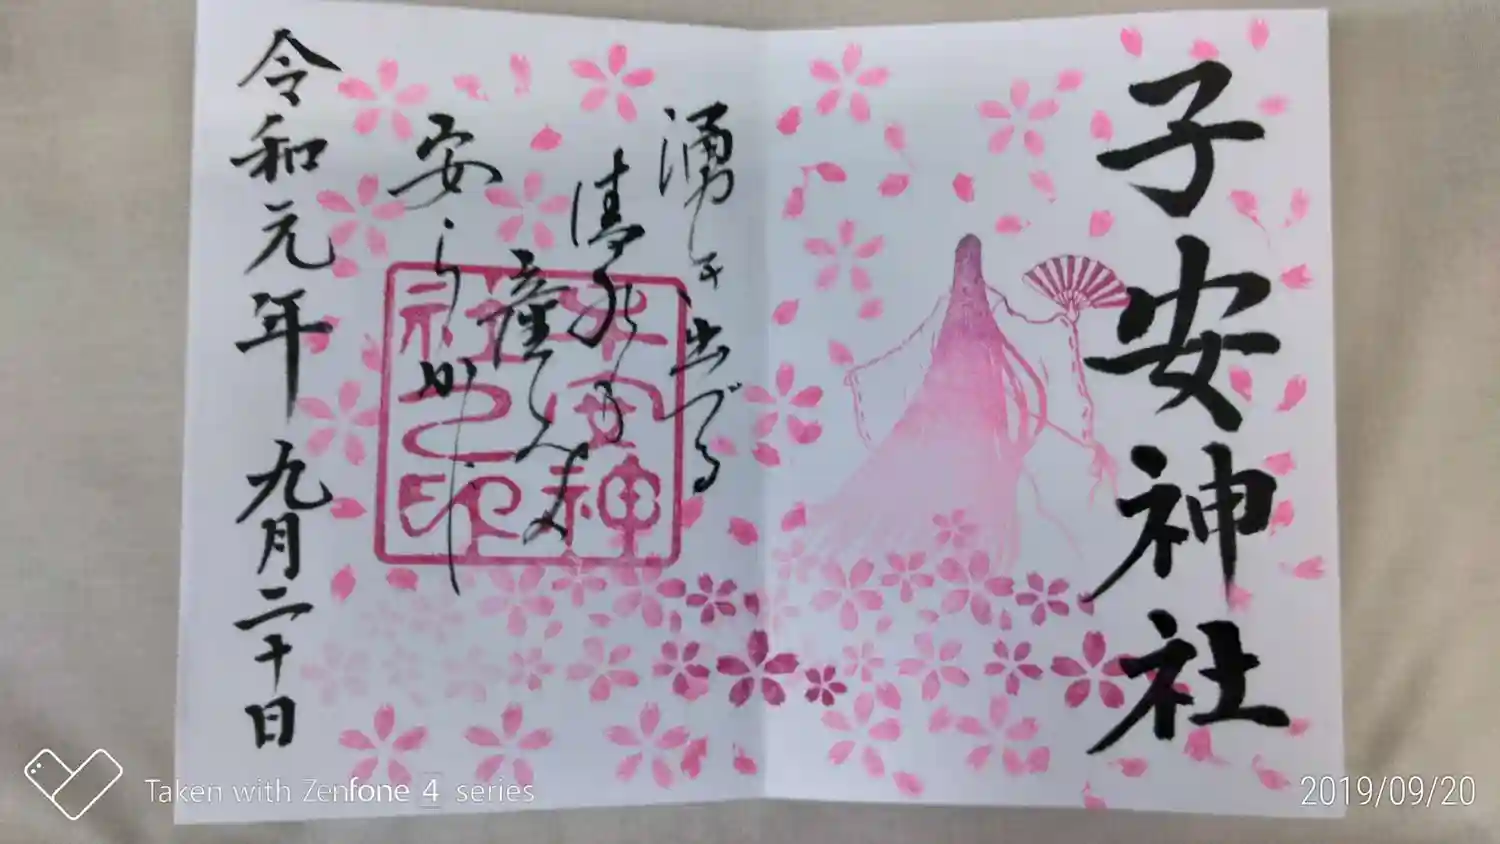 子安神社
湧き出づる
清水
安らか
子安神
社之印
令和元年九月二十日
Taken with Zenfone 4 series
2019/09/20